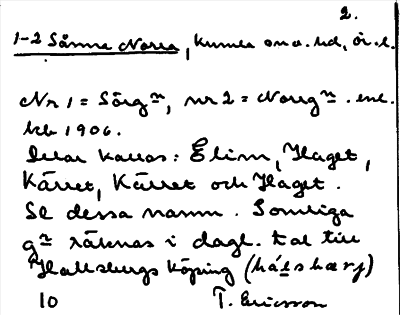 2.
1-2 Sånna Norra, Kumla snd. hd, Ör. l.
Nr 1 = Sörgn, nr 2 = Norrgn. enl.
kb 1906.
Delar kallas: Elim, Haget,
Kärret, Kärret och Haget.
Se dessa namn. Somliga
gn räknas i dagl. tal till
Hallsbergs köping (hálshærj)
10 T. Ericsson